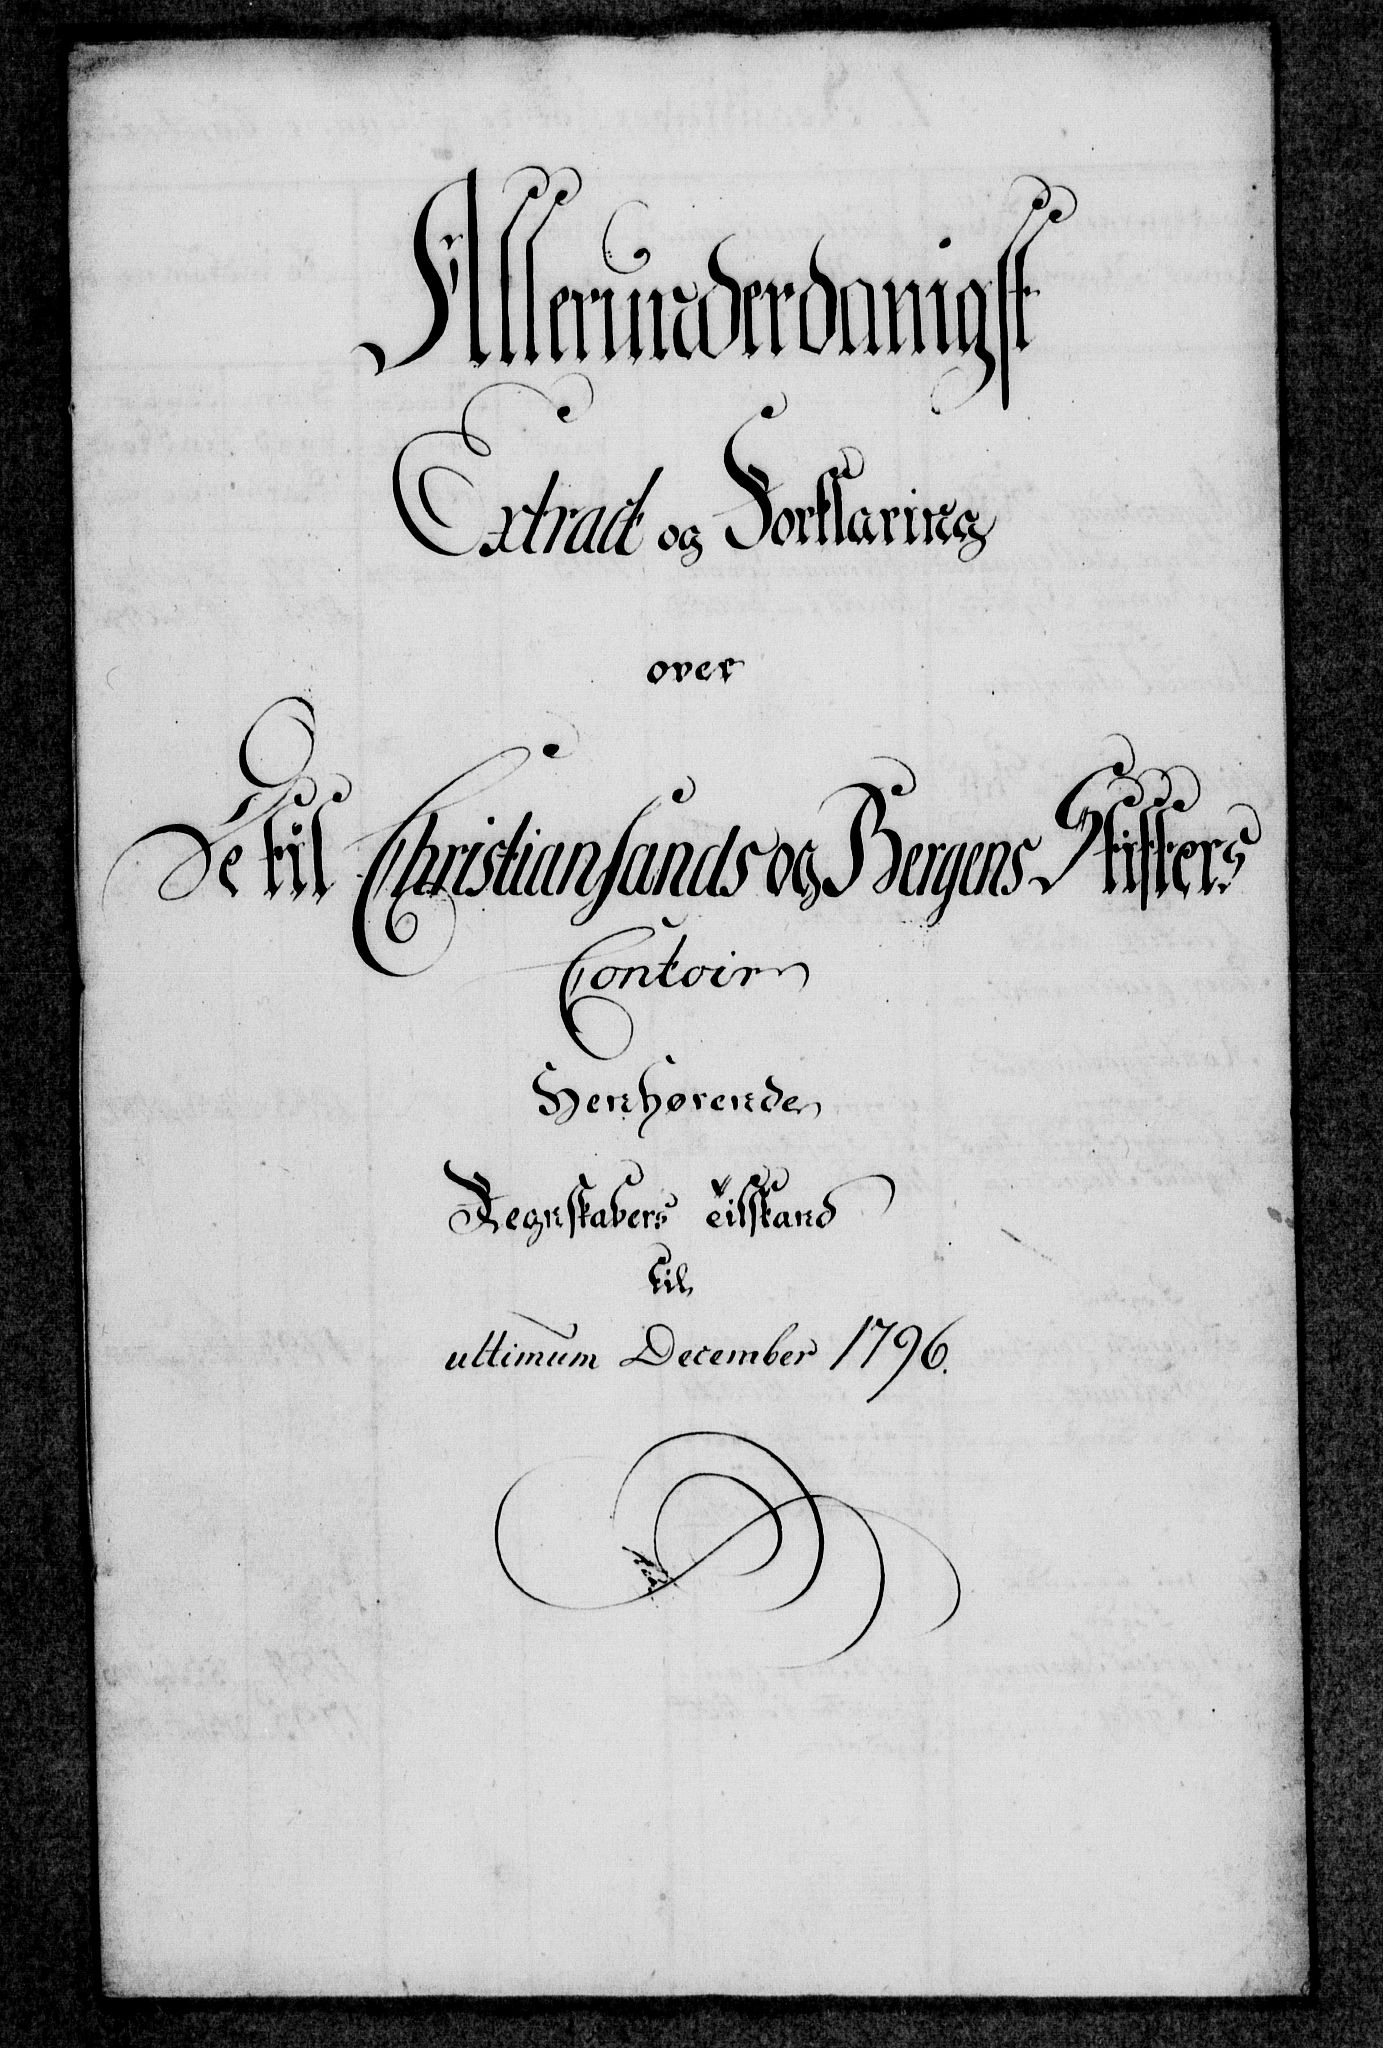 Allerunderdanigst
Extract og Forklaring
over
De til Christiansands og Bergens Stifters
Contoir
Henhørende
Regnskabers Tilstand
til
ultimum December 1796.